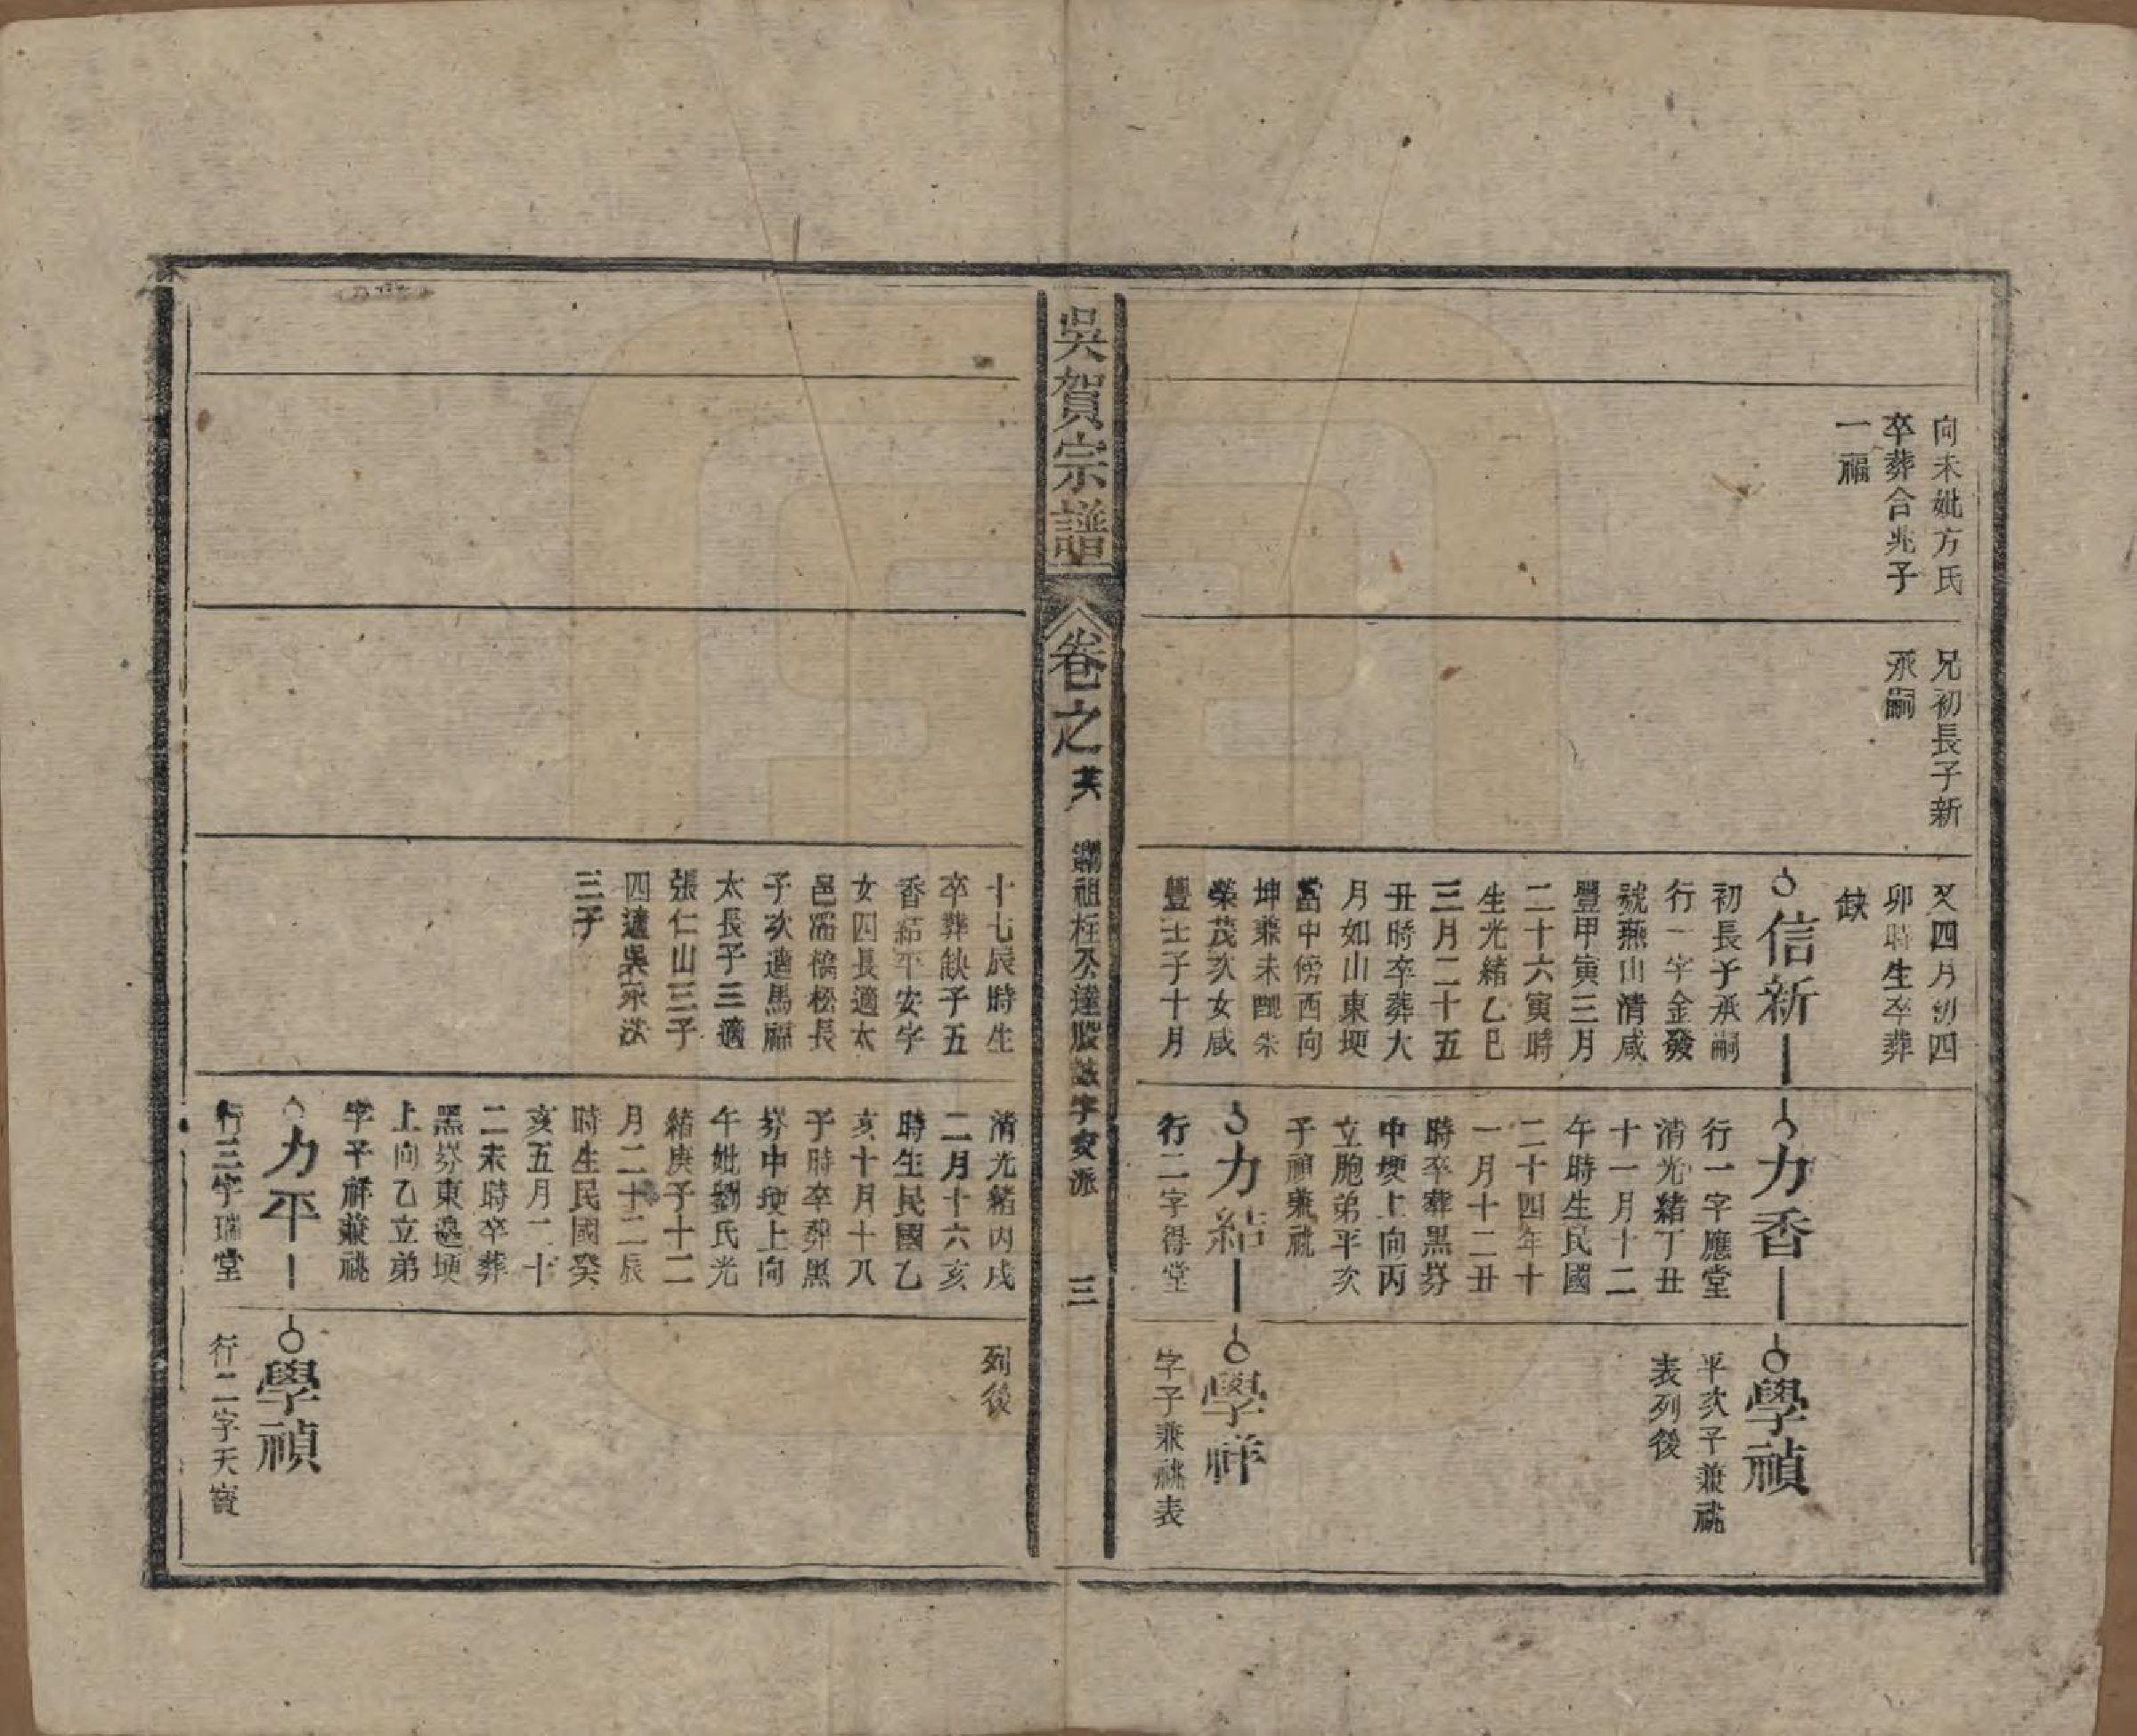 向未妣方氏
卒葬合兆子
一福
兄初長子新
承嗣
又四月初四
卯時生卒葬
缺
信新
初長子承嗣
行一字金發
號燕山清咸
豐甲寅三月
二十六寅時
生光緒乙巳
三月二十五
丑時卒葬大
月如山東埂
當中傍西向
坤兼未配朱
榮茂次女咸
豐壬子十月
力香
行一字應堂
清光緒丁丑
十一月十二
午時生民國
二十四年十
一月十二丑
時卒葬黑崗
中埂上向丙
立胞弟平次
子禎兼祧
力結
行二字得堂
學禎
平次子兼祧
表列後
學祥
字子兼祧表
吳賀宗譜
卷之
祖枉公達股字安派
三
十七辰時生
卒葬缺子五
香結平安字
女四長適太
邑松長
子次適馬福
太長子三適
張仁山三子
四適吳
三子
清光緒丙戌
二月十六亥
時生民國乙
亥十月十八
子時卒葬黑
崗中埂上向
午妣劉氏光
緒庚子十二
月二十二辰
時生民國癸
亥五月二十
二未時卒葬
黑崗東邊埂
上向乙立弟
字子祥兼祧
力平
行三字瑞堂
列後
學禎
行二字天寶